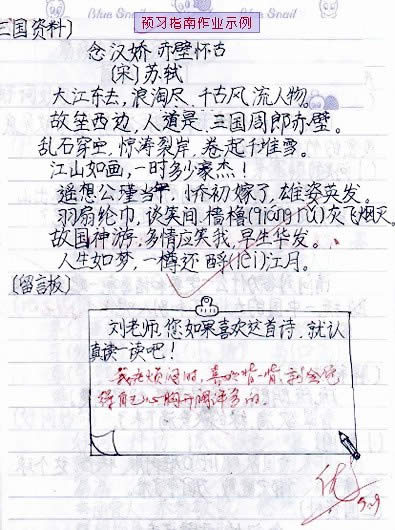 Blue Snail
预习指南作业示例
Blue Snail
三国资料〕
念汉娇 赤壁怀古
〔宋〕苏轼
大江东去,浪淘尽、千古风流人物。
故垒西边,人道是、三国周郎赤壁。
乱石穿空,惊涛裂岸,卷起千堆雪。
江山如画,一时多少豪杰!
遥想公瑾当年,小乔初嫁了,雄姿英发。
羽扇纶巾,谈笑间、樯橹(qiáng rǔ)灰飞烟灭。
故国神游,多情应笑我,早生华发。
人生如梦,一樽还酹(lèi)江月。
〔留言板〕
刘老师,您如果喜欢这首诗,就认
真读一读吧!
我在烦闷时,真的背一背,就会觉
得自己心胸开阔许多的。
优
5.9